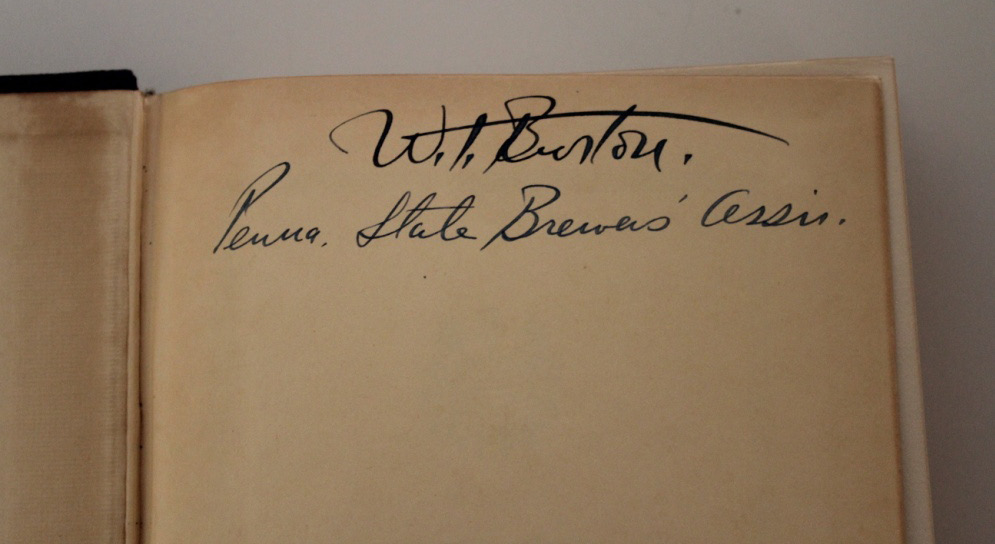 W. T. Burton.
Penna. State Brewers' Assn.